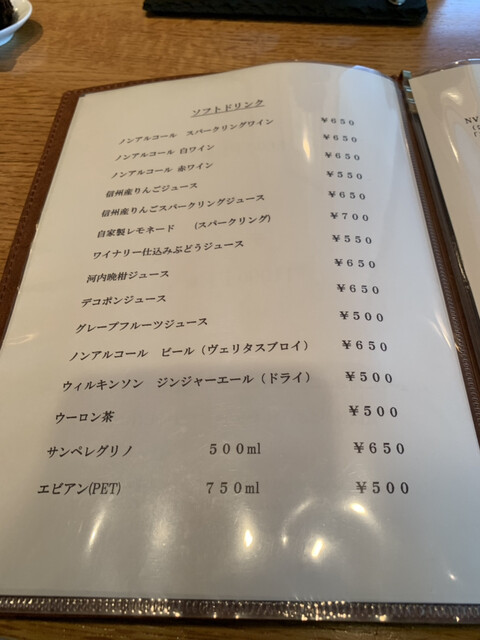 ソフトドリンク
ノンアルコール スパークリングワイン ￥650
ノンアルコール 白ワイン ￥650
ノンアルコール 赤ワイン ￥650
信州産りんごジュース ￥550
信州産りんごスパークリングジュース ￥650
自家製レモネード (スパークリング) ￥700
ワイナリー仕込みぶどうジュース ￥550
河内晩柑ジュース ￥650
デコポンジュース ￥650
グレープフルーツジュース ￥500
ノンアルコール ビール（ヴェリタスブロイ） ￥650
ウィルキンソン ジンジャーエール（ドライ） ￥500
ウーロン茶 ￥500
サンペレグリノ 500ml ￥650
エビアン(PET) 750ml ￥500
NV